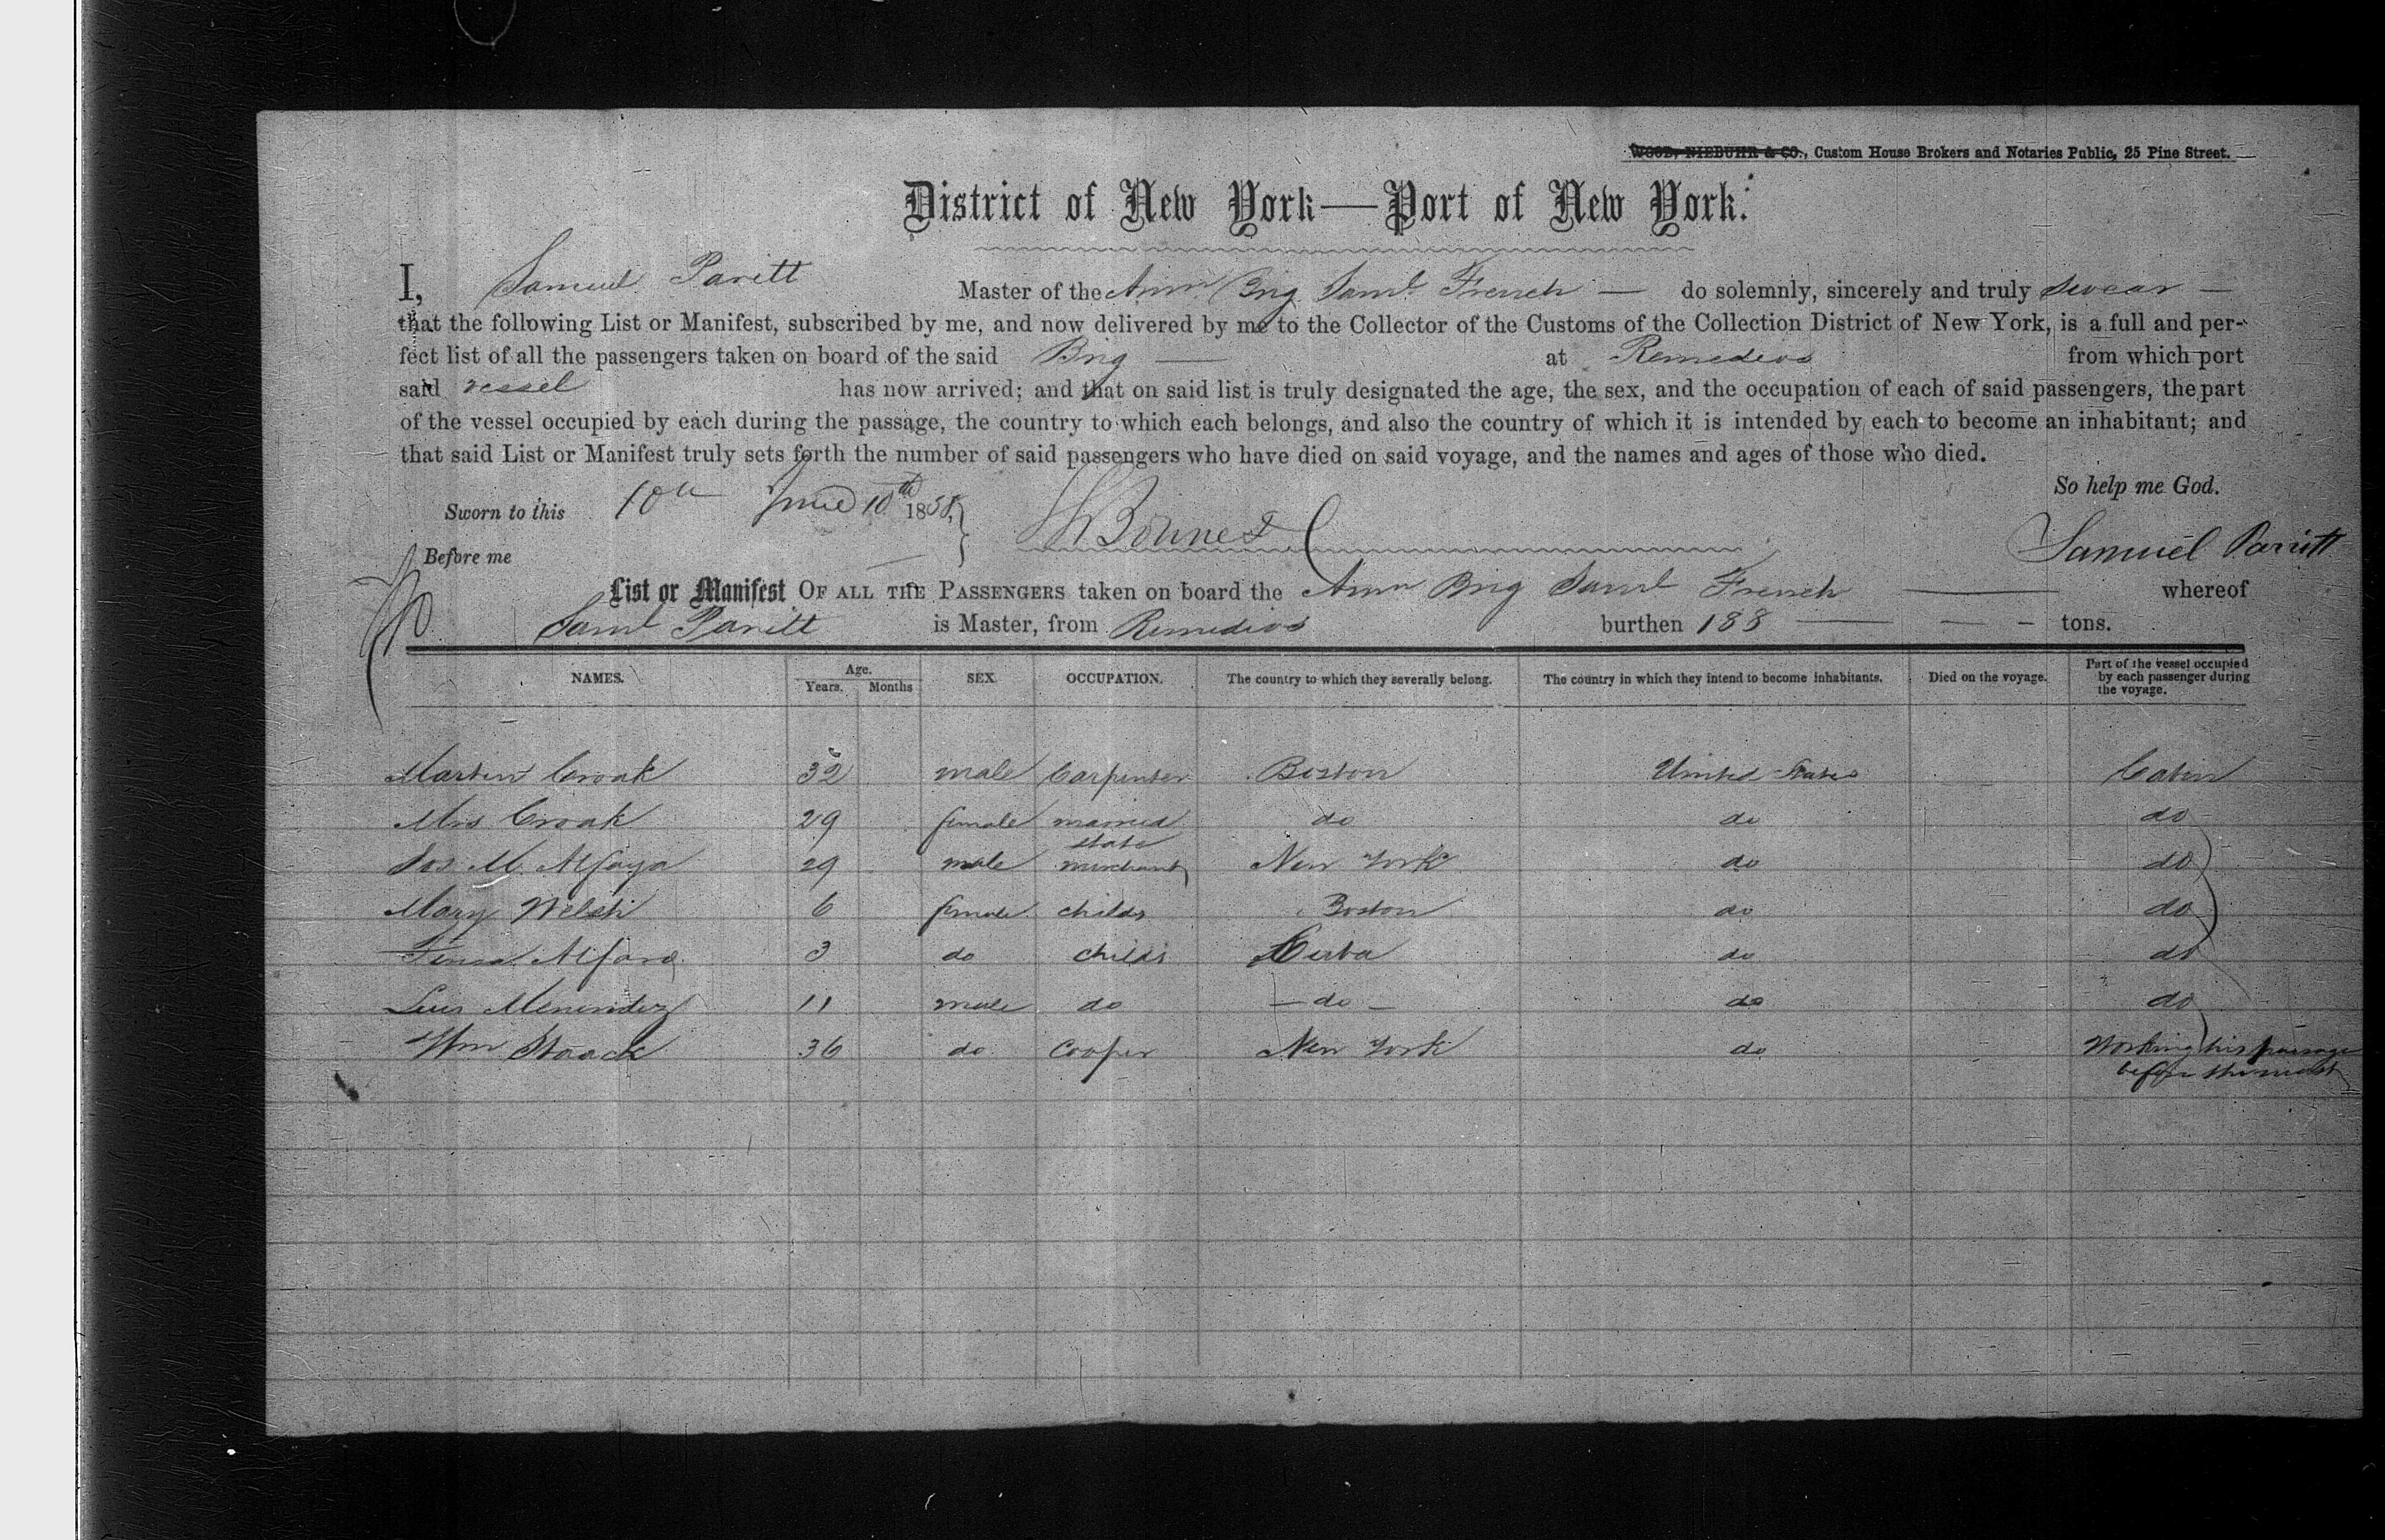 WOOD, NIEBUHR & CO., Custom House Brokers and Notaries Public, 25 Pine Street.
District of New York—Port of New York.
I, Samuel Pavitt Master of the Amn Brig Saml French — do solemnly, sincerely and truly swear —
that the following List or Manifest, subscribed by me, and now delivered by me to the Collector of the Customs of the Collection District of New York, is a full and per-
fect list of all the passengers taken on board of the said Brig — at Remedios from which port
said vessel has now arrived; and that on said list is truly designated the age, the sex, and the occupation of each of said passengers, the part
of the vessel occupied by each during the passage, the country to which each belongs, and also the country of which it is intended by each to become an inhabitant; and
that said List or Manifest truly sets forth the number of said passengers who have died on said voyage, and the names and ages of those who died.
So help me God.
Sworn to this 10th June 10th 1858
Before me
Samuel Pavitt
List or Manifest OF ALL THE PASSENGERS taken on board the Amn Brig Saml French — whereof
Saml Pavitt is Master, from Remedios burthen 188 — — — tons.
NAMES. Age. Years. Months SEX. OCCUPATION. The country to which they severally belong. The country in which they intend to become inhabitants. Died on the voyage. Part of the vessel occupied by each passenger during the voyage.
Martin Croak 32 male Carpenter Boston United States Cabin
Mrs Croak 29 female married state do do do
Jos. M. Alfaya 29 male merchant New York do do
Mary Welsh 6 female child Boston do do
3 do child Cuba do do
Luis Menendez 11 male do — do — do do
Wm Staack 36 do Cooper New York do Working his passage
before the mast